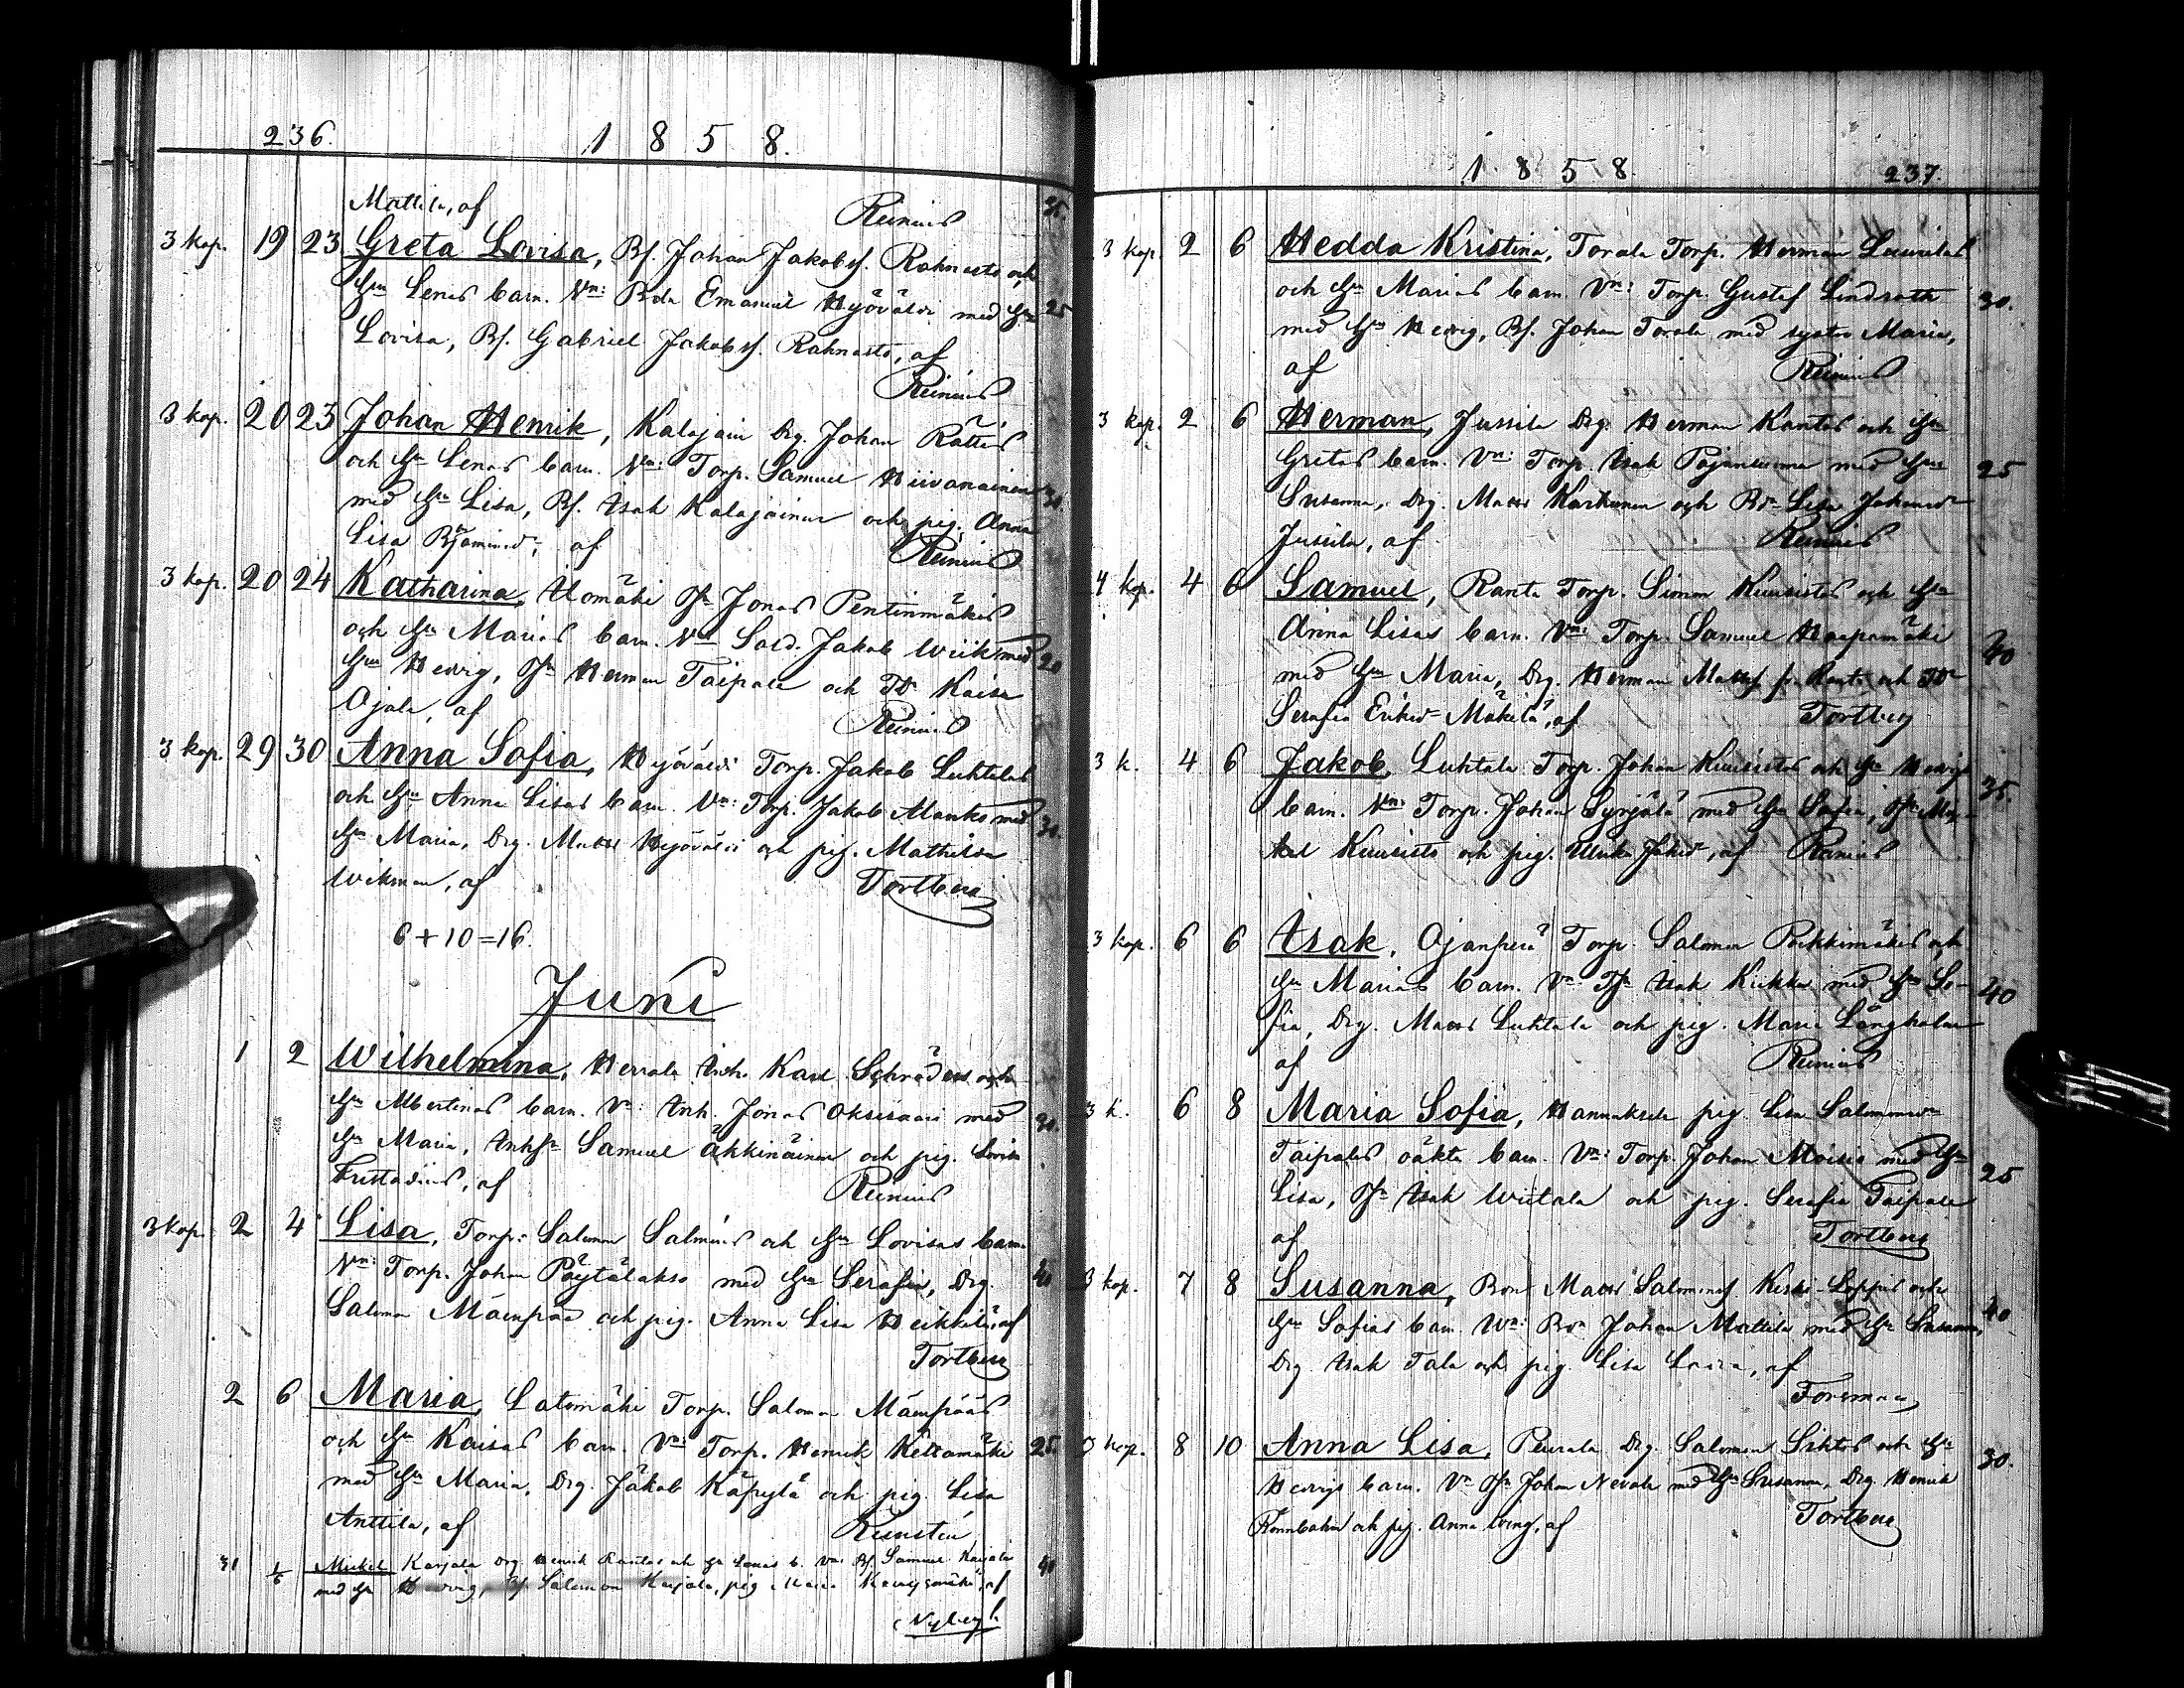 236. 1 8 5 8.
Mattila, af Reinius 35.
3 kop. 19 23 Greta Lovisa, Bs. Johan Jakobss. Rahnasto och
Hu Lenas barn. Vn: Bdn Emanuel Hyöväldi med Hu 25
Lovisa, Bs. Gabriel Jakobss. Rahnasto, af
Reinius
3 kop. 20 23 Johan Henrik, Kalajain Drg. Johan Rättis
och Hu Lenas barn. Vn: Torp. Samuel Hiivanainen 30.
med Hu Lisa, Bs. Isak Kalajainen och pig. Anna
Lisa Bjömind, af Reinius
3 kop. 20 24 Katharina, Uomäki Jonas Pentinmäkis
och Hu Marias barn. Vn Sold. Jakob Wiik med 20
Hu Hedvig, Herman Taipale och Kaisa
Ojala, af Reinius
3 kop. 29 30 Anna Sofia, Hyöväldi Torp. Jakob Luhtalas
och Hu Anna Lisas barn. Vn: Torp. Jakob Alanko med 30.
Hu Maria, Drg. Matts Hyöväldi och pig. Mathilda
Wikman, af Tortberg
6 + 10 = 16.
Juni
1 2 Wilhelmina, Herrala Inh. Karl Schröders och
Hu Albertinas barn. Vn: Inh. Jonas Oksisaari med 30.
Hu Maria, Samuel Äkkinäinen och pig. Lovisa
Frestadius, af Reinius
3 kop. 2 4 Lisa, Torp. Salomon Salminis och Hu Lovisas barn
Vn: Torp. Johan Pöytälakso med Hu Serafia, Drg. 40
Salomon Mäenpää och pig. Anna Lisa Heikkilä, af
Tortberg
2 6 Maria, Latomäki Torp. Salomon Mäenpääs
och Hu Kaisas barn. Vn: Torp. Henrik Keltamäki 25.
med Hu Maria, Drg. Jakob Käpylä och pig. Lisa
Anttila, af
31 1/6 Mickel Karjala Drg. Henrik Rantas och Hu Lenas b. Vn: Bs. Samuel Karjala 40
med Hu Hedvig, Bs. Salomon Karjala, pig Maria af
Nybergh
1 8 5 8. 237.
3 kop. 2 6 Hedda Kristina, Torala Torp. Herman Laurilas
och Hu Marias barn. Vn: Torp. Gustaf Lindroth 30.
med Hu Hedvig, Bs. Johan Torala med syster Maria,
af Reinius
3 kop. 2 6 Herman, Jussila Drg. Herman Kantos och Hu
Gretas barn. Vn: Torp. Isak Pajunluoma med Hu 25
Susanna, Drg. Matts Karhunen och Lisa Johansdr
Jussila, af Reinius
4 kop. 4 6 Samuel, Ranta Torp. Simon Kuusistos och Hu
Anna Lisas barn. Vn: Torp. Samuel Haapamäki 40
med Hu Maria, Drg. Herman Mattss. fr. Ranta och
Serafia Eriksdr Mäkelä, af Tortberg
3 k. 4 6 Jakob, Luhtala Torp. Johan Kuusistos och Hu Hedvigs 35.
barn. Vn: Torp. Johan Syrjälä med Hu Sofia,
Kuusisto och pig. Ulrika af Reinius
3 kop. 6 6 Isak, Ojanperä Torp. Salomon Poikkimäkis och
Hu Marias barn. Vn Isak Kukka med Hu So- 40
fia, Drg. Matts Luhtala och pig. Maria Långholm
af Reinius
3 k. 6 8 Maria Sofia, Hannuksela pig. Lisa Salomonsdr
Taipales oäkta barn. Vn: Torp. Johan Moisio med Hu 25
Lisa, Isak Wiitala och pig. Serafia Taipale
af Tortberg
3 kop. 7 8 Susanna, Bon Matts Salomonss. Keski-Loppis och
Hu Sofias barn. Vn: Bdn Johan Mattila med Hu Susanna, 40
Drg. Isak Tala och pig. Lisa af
Forsman
3 kop. 8 10 Anna Lisa, Peurala Drg. Salomon Sihtos och Hu 30.
Hedvigs barn. Vn Johan Nevala med Hu Susanna, Drg. Henrik
och pig. Anna af Tortberg